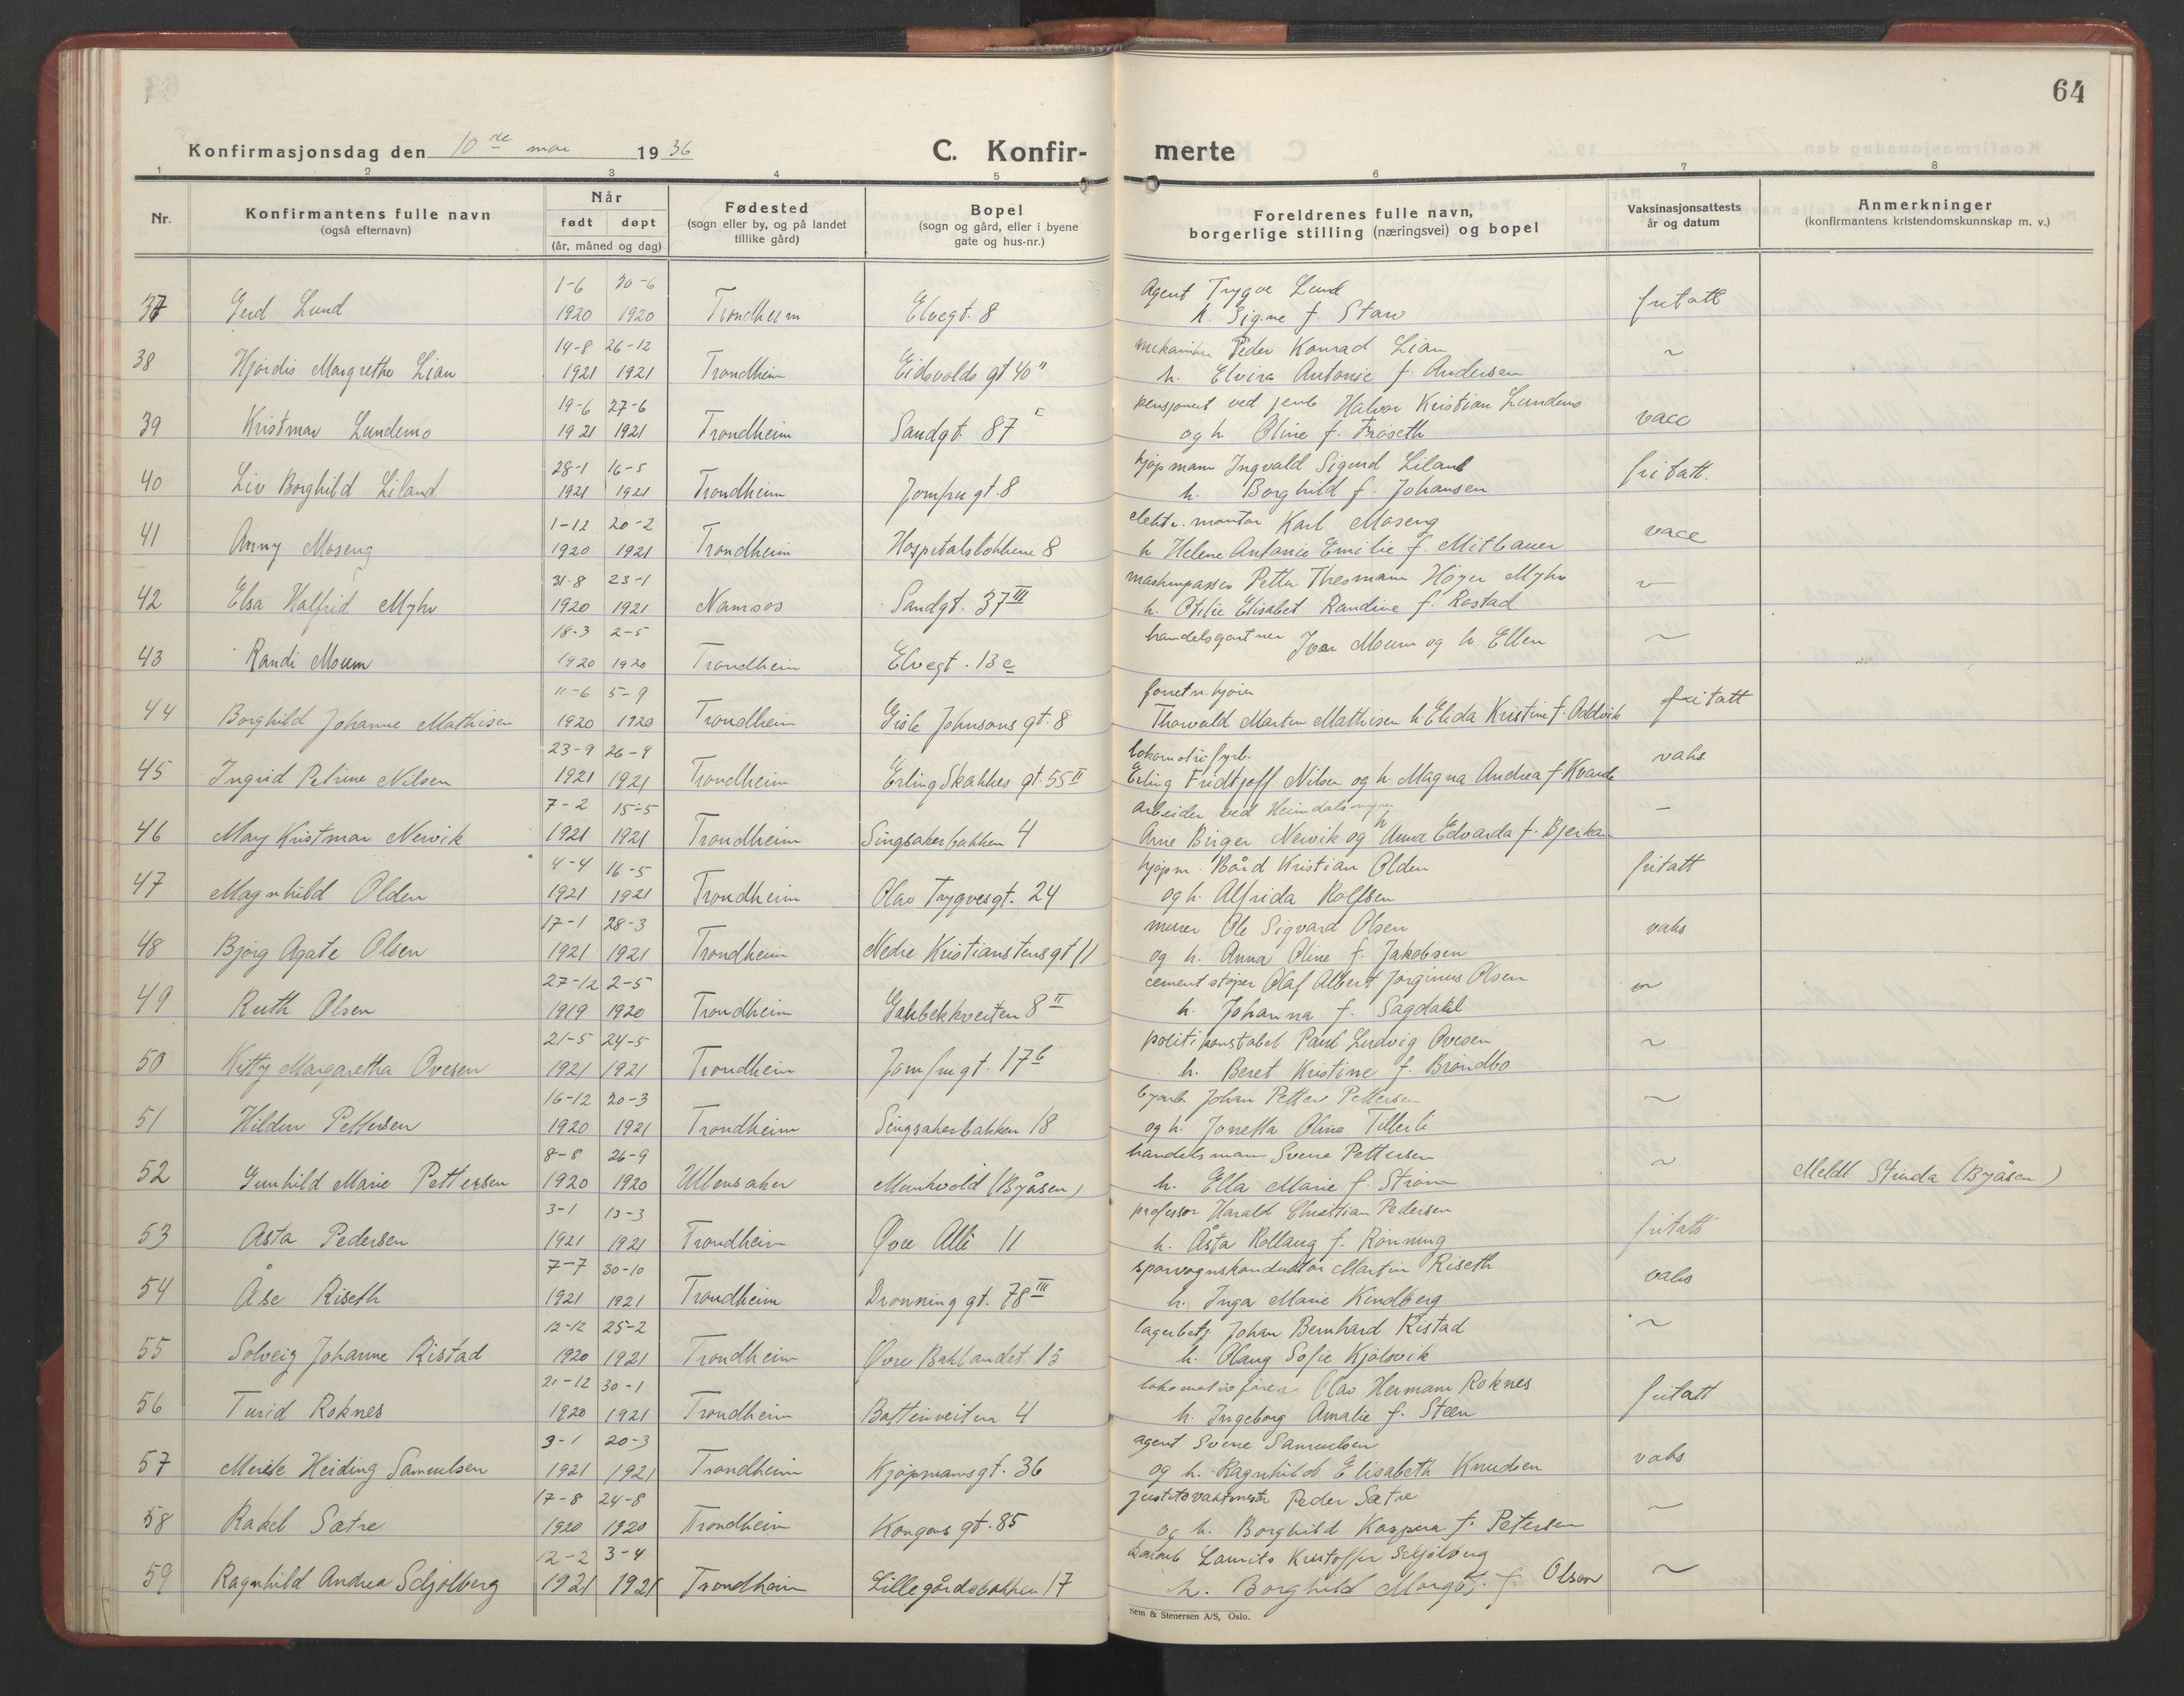 64
Konfirmasjonsdag den 10de mai 1936
C. Konfir-
merte
1 2 3 4 5 6 7 8
Nr.
Konfirmantens fulle navn
(også efternavn)
Når
født døpt
(år, måned og dag)
Fødested
(sogn eller by, og på landet
tillike gård)
Bopel
(sogn og gård, eller i byene
gate og hus-nr.)
Foreldrenes fulle navn,
borgerlige stilling (næringsvei) og bopel
Vaksinasjonsattests
år og datum
Anmerkninger
(konfirmantens kristendomskunnskap m. v.)
1-6 20-6 Agent Trygve Lund
37 Gerd Lund 1920 1920 Trondheim Elvegt. 8 h. Signe f. Staw fritatt
14-8 26-12 Peder Konrad Lian
38 Hjørdis Margrethe Lian 1921 1921 Trondheim Eidsvolds gt 40" h. Elvira Antonie f. Andersen ~
19-6 27-6 pensjonert ved jernb Halvor Kristian Lundemo
39 Kristmar Lundemo 1921 1921 Trondheim Sandgt 87 og h Oline f. Frøseth vacc
28-1 16-5 kjøpmann Ingvald Sigurd Liland
40 Liv Borghild Liland 1921 1921 Trondheim Jomfrugt. 8 h. Borghild f. Johansen fritatt.
1-12 20-2 elektr. montør Karl Moseng
41 Anny Moseng 1920 1921 Trondheim Hospitalsløkkene 8 h Helene Antonie Emilie f. Mitbauer vacc
31-8 23-1 maskinpasser Petter Thesmann Höyer Myhr
42 Elsa Halfrid Myhr 1920 1921 Namsos Sandgt. 37 III h. Otilie Elisabet Randine f. Rostad ~
18-3 2-5 handelsgartner Ivar Moum og h. Ellen ~
43 Randi Moum 1920 1920 Trondheim Elvegt. 13 c
11-6 5-9
44 Borghild Johanne Mathisen 1920 1920 Trondheim Gisle Johnsons gt. 8 Thorvald Martin Mathisen h. Elida Kristine f. Oddvik fritatt
23-9 26-9 lokomotivfyrb.
45 Ingrid Petrine Nilsen 1921 1921 Trondheim Erling Skakkes gt. 55 II Erling Fridtjoff Nilsen og h. Magna Andrea f Kvande vaks
7-2 15-5 Arbeider ved
46 May Kristmar Nervik 1921 1921 Trondheim Singsakerbakken 4 Arne Birger Nervik og h Anna Edvarda f. Bjerkan –
4-4 16-5 kjøpm. Bård Kristian Olden
47 Magnhild Olden 1921 1921 Trondheim Olav Trygvesgt. 24 og h. Alfrida Rolfsen fritatt
17-1 28-3 murer Ole Sigvard Olsen
48 Bjørg Agate Olsen 1921 1921 Trondheim Nedre Kristianstensgt 11 og h. Anna Oline f. Jakobsen vaks
27-12 2-5 cementstøper Olaf Albert Jørginus Olsen
49 Ruth Olsen 1919 1920 Trondheim Gaubekkveiten 8 II h. Johanna f. Sagdahl ~
21-5 24-5 politikonstabel Paul Ludvig Ovesen
50 Kitty Margaretha Ovesen 1921 1921 Trondheim Jomfrugt. 17 b h. Beret Kristine f. Brøndbo ~
16-12 20-3 Johan Petter Pettersen
51 Hildur Pettersen 1920 1921 Trondheim Singsakerbakken 18 og h. Jonetta Oline Tillerli ~
8-8 26-9 handelsmann Sverre Pettersen
52 Gunhild Marie Pettersen 1920 1920 Ullensaker Munkvold (Byåsen) h. Ella Marie f. Strøm ~ Meldt Strinda (Byåsen)
3-1 13-3 professor Harald Christian Pedersen
53 Åsta Pedersen 1921 1921 Trondheim Øvre Allé 11 h. Åsta Rollaug f. Rønning fritatt
7-7 30-10 sporvognskonduktør Martin Riseth
54 Åse Riseth 1921 1921 Trondheim Dronning gt. 78 III h. Inga Marie Kindberg vaks
12-12 25-2 lagerbetj. Johan Bernhard Ristad
55 Solveig Johanne Ristad 1920 1921 Trondheim Øvre Baklandet 15 h. Olaug Sofie Kjølsvik ~
21-12 30-1 lokomotivfører Olav Hermann Roknes
56 Turid Roknes 1920 1921 Trondheim Bakkeveiten 4 h. Ingeborg Amalie f. Steen fritatt
3-1 20-3 agent Sverre Samuelsen
57 Merete Heiding Samuelsen 1921 1921 Trondheim Kjøpmannsgt. 36 og h. Ragnhild Elisabeth Knudsen vaks
17-8 24-8 Peder Sætre
58 Rakel Sætre 1920 1920 Trondheim Kongens gt. 85 og h. Borghild Kaspera f. Petersen ~
12-2 3-4 Laurits Kristoffer Schjølberg
59 Ragnhild Andrea Schjølberg 1921 1921 Trondheim Lillegårdsbakken 17 h. Borghild Margot f. Olsen ~
Sem & Stenersen A/S, Oslo.